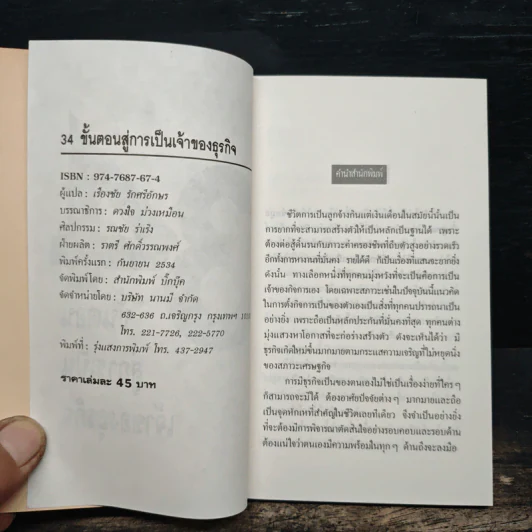 34 ขั้นตอนสู่การเป็นเจ้าของธุรกิจ
ISBN : 974-7687-67-4
ผู้แปล : เรืองชัย รักศรีอักษร
บรรณาธิการ : ดวงใจ ม่วงเหมือน
ศิลปกรรม : รณชัย ร่าเริง
ฝ่ายผลิต : ราตรี ศักดิ์วรรณพงศ์
พิมพ์ครั้งแรก : กันยายน 2534
จัดพิมพ์โดย : สำนักพิมพ์ บิ๊กบุ๊ค
จัดจำหน่ายโดย : บริษัท นานมี จำกัด
632-636 ถ.เจริญกรุง กรุงเทพฯ
โทร. 221-7726, 222-5770
พิมพ์ที่ : รุ่งแสงการพิมพ์ โทร. 437-2947
ราคาเล่มละ 45 บาท
คำนำสำนักพิมพ์
ชีวิตการเป็นลูกจ้างกินแต่เงินเดือนในสมัยนี้นั้นเป็น
การยากที่จะสามารถสร้างตัวให้เป็นหลักเป็นฐานได้ เพราะ
ต้องต่อสู้ดิ้นรนกับภาวะค่าครองชีพที่ถีบตัวสูงอย่างรวดเร็ว
อีกทั้งการหางานที่มั่นคง รายได้ดี ก็เป็นเรื่องที่แสนจะยากยิ่ง
ดังนั้น ทางเลือกหนึ่งที่ทุกคนมุ่งหวังที่จะเป็นคือการเป็น
เจ้าของกิจการเอง โดยเฉพาะสภาวะเช่นในปัจจุบันนี้แนวคิด
ในการตั้งกิจการเป็นของตัวเองเป็นสิ่งที่ทุกคนปรารถนาเป็น
อย่างยิ่ง เพราะถือเป็นหลักประกันที่มั่นคงที่สุด ทุกคนต่าง
มุ่งแสวงหาโอกาสที่จะก่อร่างสร้างตัว ดังจะเห็นได้ว่า มี
ธุรกิจเกิดใหม่ขึ้นมากมายตามกระแสความเจริญที่ไม่หยุดนิ่ง
ของสภาวะเศรษฐกิจ
การมีธุรกิจเป็นของตนเองไม่ใช่เป็นเรื่องง่ายที่ใครๆ
ก็สามารถจะมีได้ ต้องอาศัยปัจจัยต่างๆ มากมายและถือ
เป็นจุดหักเหที่สำคัญในชีวิตเลยทีเดียว จึงจำเป็นอย่างยิ่ง
ที่จะต้องมีการพิจารณาตัดสินใจอย่างรอบคอบและรอบด้าน
ต้องแน่ใจว่าตนเองมีความพร้อมในทุกๆ ด้านถึงจะลงมือ